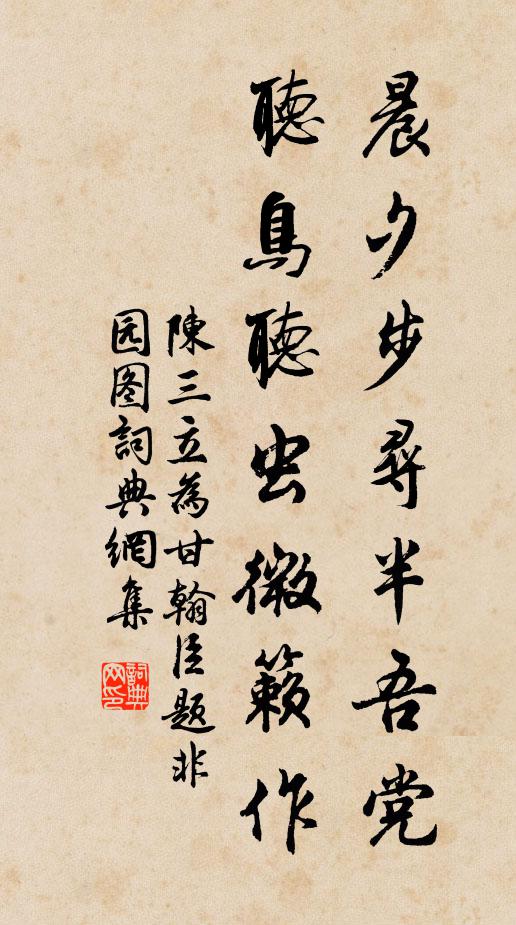 晨夕步尋半吾党
聽鳥聽虫微籟作
陳三立為甘翰臣題非
园图詞典網集
詞典网印